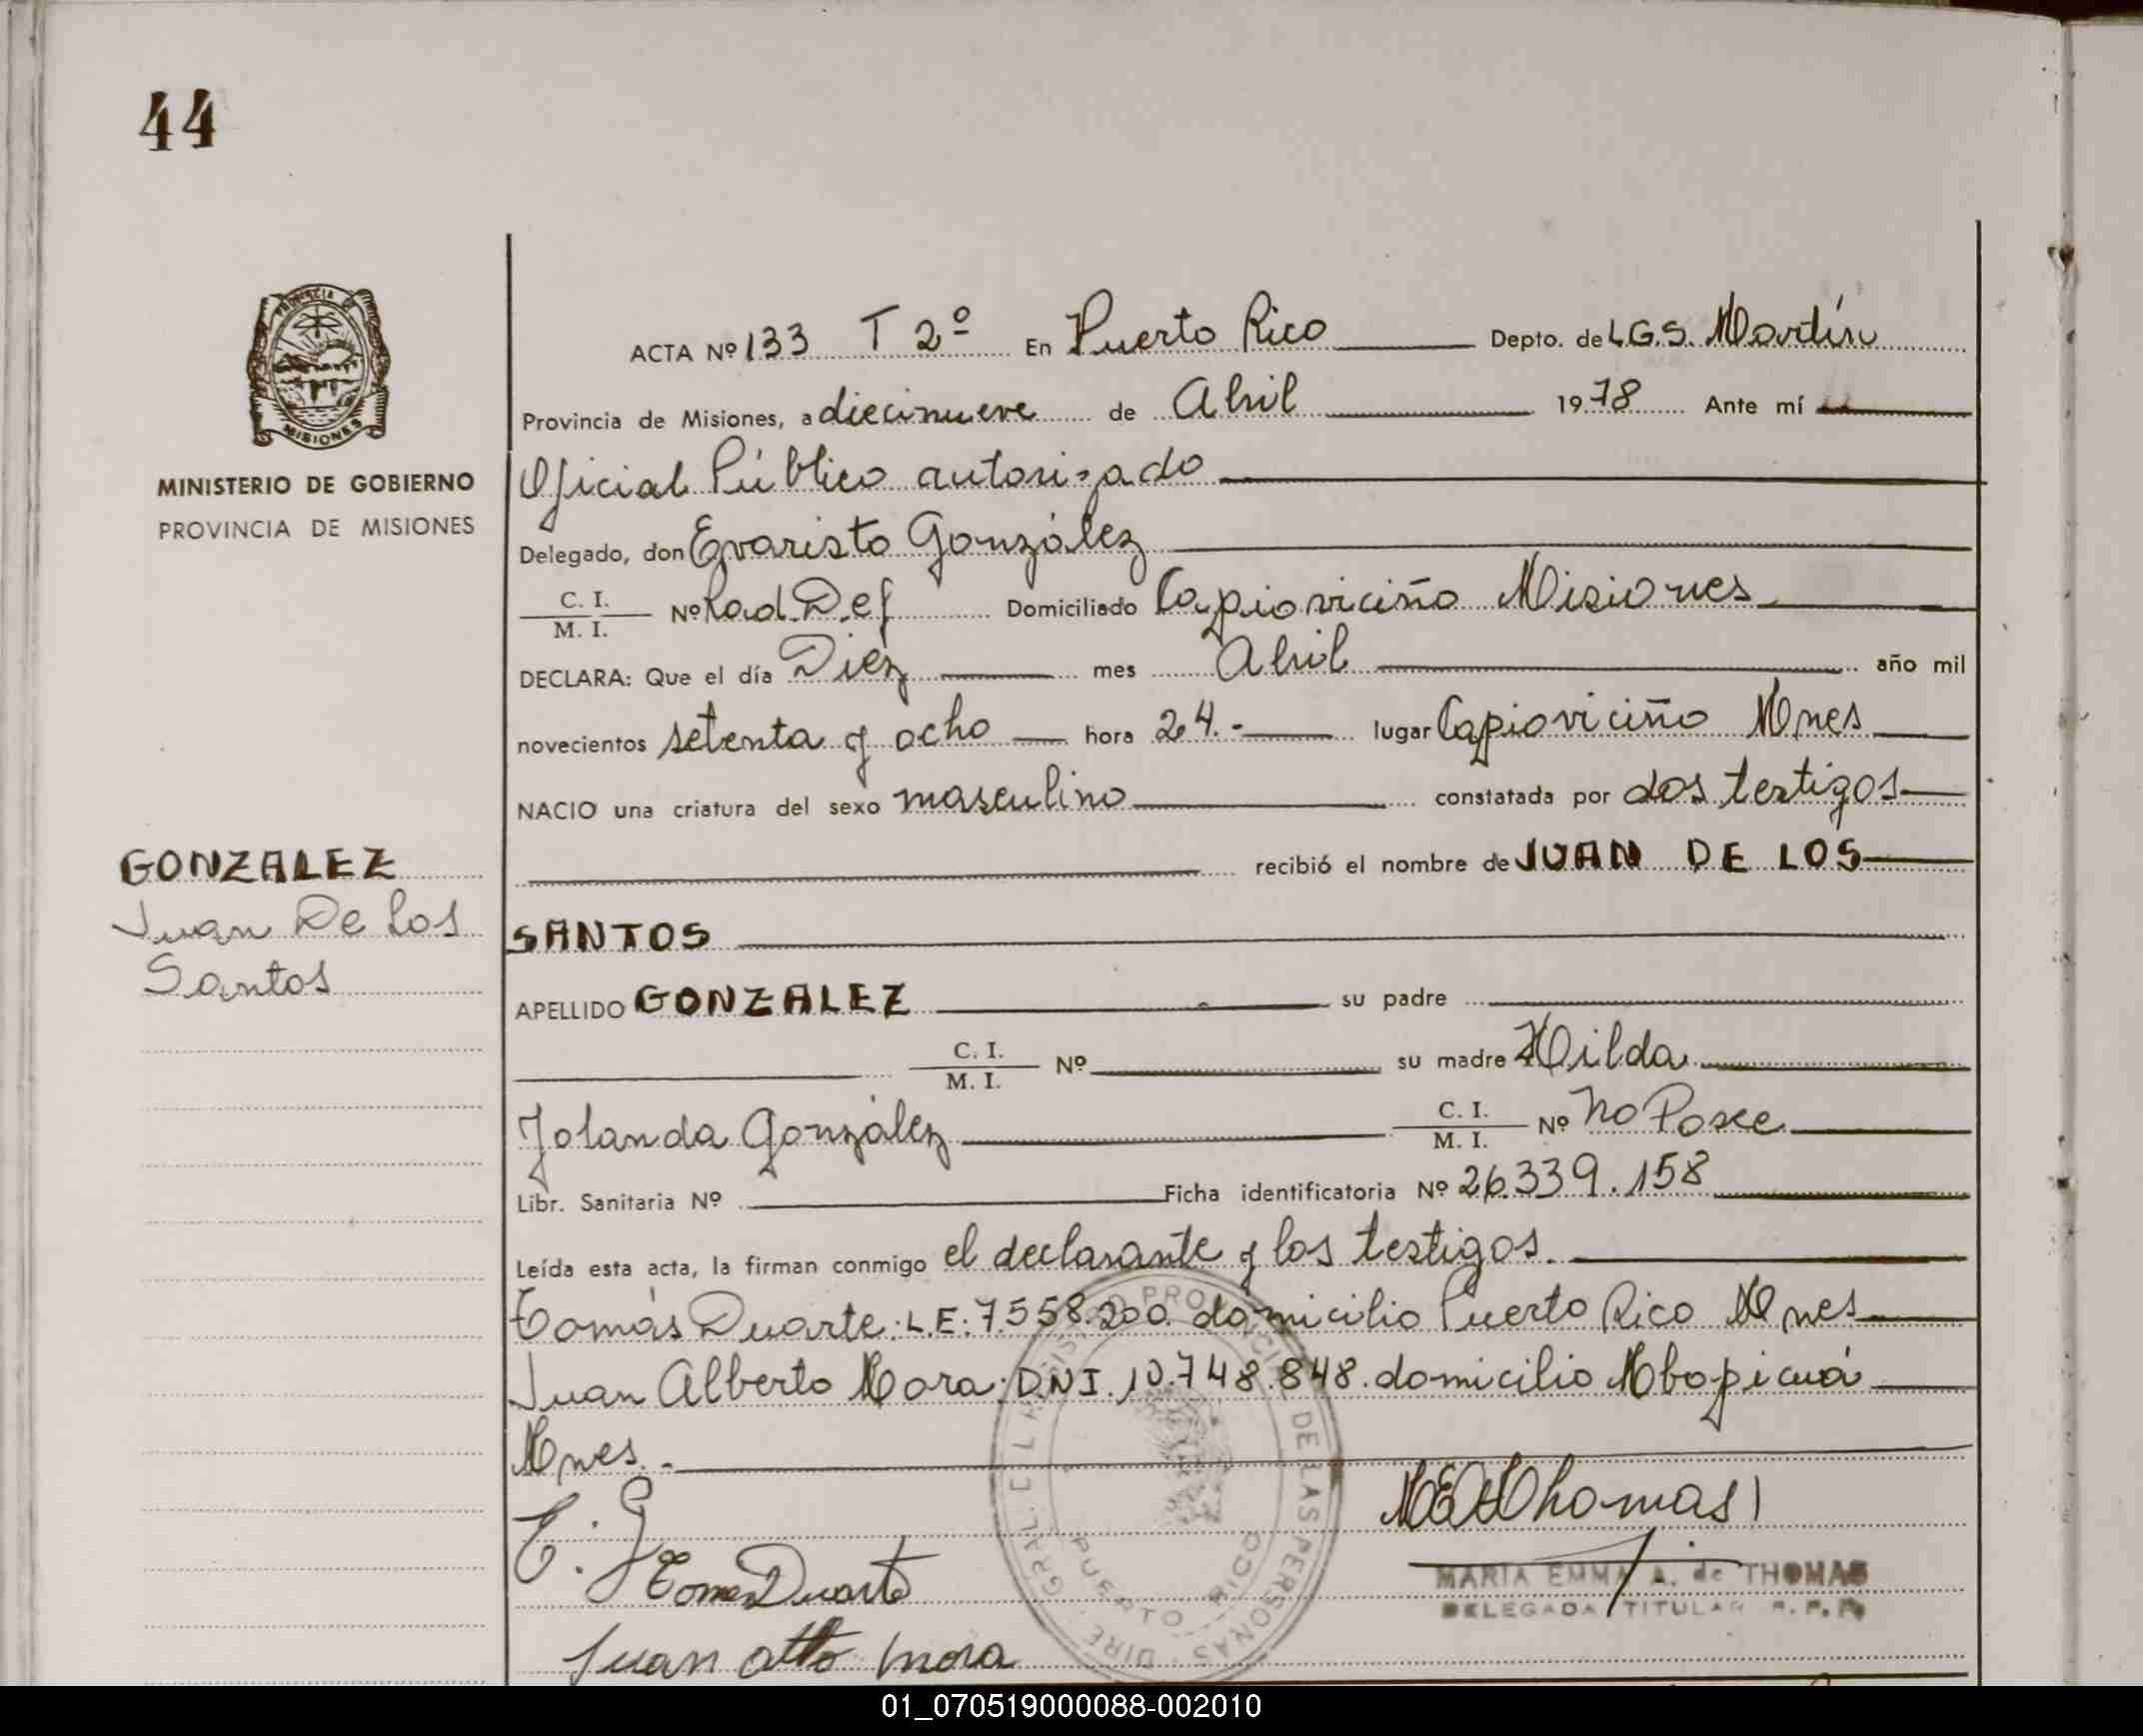 44
PROVINCIA DE
MISIONES
MINISTERIO DE GOBIERNO
PROVINCIA DE MISIONES
ACTA Nº 133 T 2º En Puerto Rico Depto. de L.G.S. Martín
Provincia de Misiones, a diecinueve de Abril 1978 Ante mí
Oficial Público autorizado
Delegado, don Evaristo González
C. I. / M. I. Nº Rad. Def Domiciliado Capioviciño Misiones
DECLARA: Que el día Diez mes Abril año mil
novecientos setenta y ocho hora 24.- lugar Capioviciño Mnes
NACIO una criatura del sexo masculino constatada por dos testigos
recibió el nombre de JUAN DE LOS
SANTOS
GONZALEZ
Juan De Los
Santos
APELLIDO GONZALEZ su padre
C. I. / M. I. Nº su madre Hilda
Yolanda González C. I. / M. I. Nº No Posee
Libr. Sanitaria Nº Ficha identificatoria Nº 26.339.158
Leída esta acta, la firman conmigo el declarante y los testigos.
Tomás Duarte. L.E: 7.558.200. domicilio Puerto Rico Mnes
Juan Alberto Mora. D.N.I. 10.748.848. domicilio Mbopicuá
Mnes.-
E. G
Tomas Duarte
Juan Alto Mora
MEAThomas
MARIA EMMA A. de THOMAS
DELEGADA TITULAR R. P. P.
DE LAS PERSONAS
PUERTO RICO
01_070519000088-002010